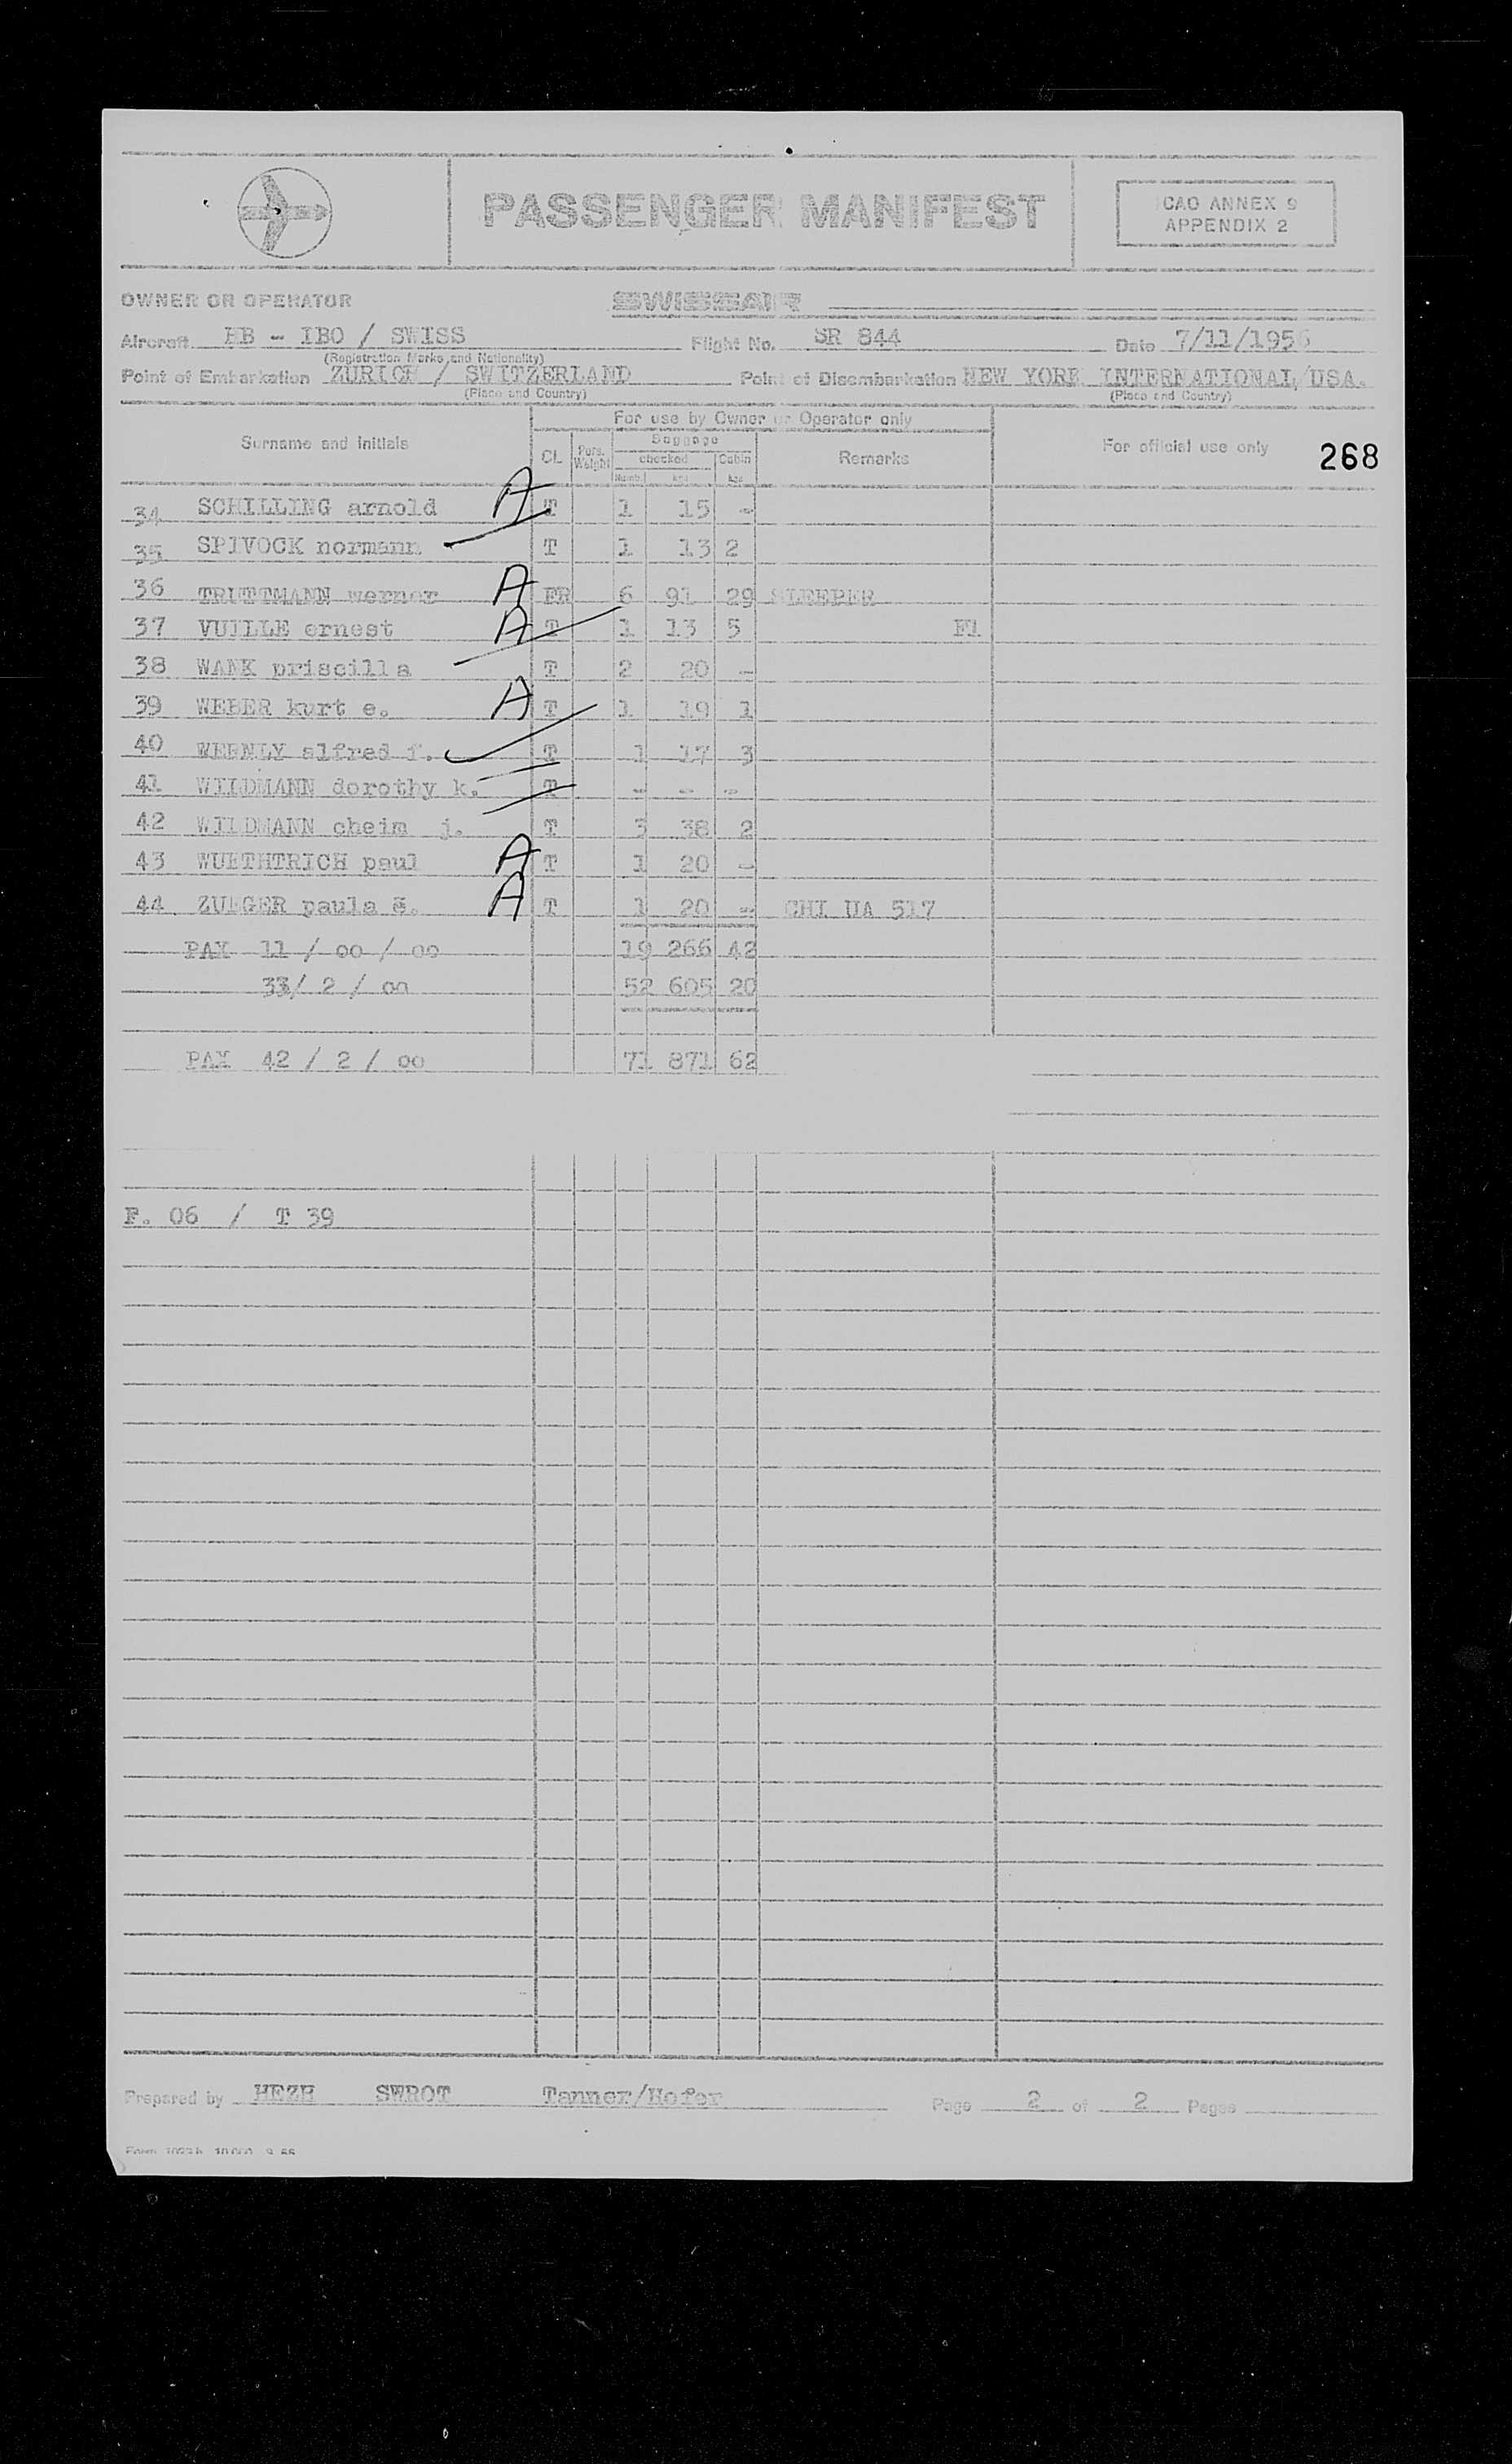 PASSENGER MANIFEST
ICAO ANNEX 9
APPENDIX 2
OWNER OR OPERATOR SWISSAIR
Aircraft HB - IBO / SWISS Flight No. SR 844 Date 7/11/1956
(Registration Marks and Nationality)
Point of Embarkation ZURICH / SWITZERLAND Point of Disembarkation NEW YORK INTERNATIONAL, USA.
(Place and Country) (Place and Country)
For use by Owner or Operator only
Surname and initials CL. Pers. Weight Baggage checked Numb. kgs Cabin kgs Remarks For official use only 268
34 SCHILLING arnold A T 1 15 -
35 SPIVOCK normann T 1 13 2
36 TRUTTMANN werner A FR 6 91 29 SLEEPER
37 VUILLE ernest A T 1 13 5 F1
38 WANK priscilla T 2 20 -
39 WEBER kurt e. A T 1 19 1
40 WERNLY alfred f. T 1 17 3
41 WILDMANN dorothy k. T - - -
42 WILDMANN cheim j. T 3 38 2
43 WUETHTRICH paul A T 1 20 -
44 ZUEGER paula A T 1 20 - CHI UA 517
PAX 11 / oo / oo 19 266 42
33/ 2 / oo 52 605 20
PAX 42 / 2 / oo 71 871 62
F. 06 / T 39
Prepared by HEZH SWROT Tanner/Hofer Page 2 of 2 Pages
Form 10.000 9.56